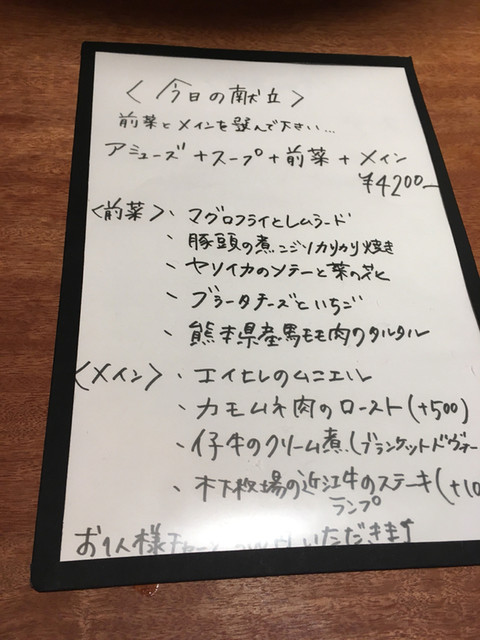 〈今日の献立〉
前菜とメインを選んで下さい…
アミューズ+スープ+前菜+メイン
¥4200-
〈前菜〉・マグロフライとレムラード
・豚頭の煮こごりカリカリ焼き
・ヤリイカのソテーと菜の花
・ブラータチーズといちご
・熊本県産馬モモ肉のタルタル
〈メイン〉・エイヒレのムニエル
・カモムネ肉のロースト(+500)
・仔牛のクリーム煮(ブランケットドヴォー
・木下牧場の近江牛のステーキ(+10
ランプ
お1人様チャージ いただきます